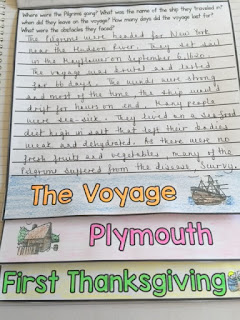 Where were the Pilgrims going? What was the name of the ship they traveled in?
When did they leave on the voyage? How many days did the voyage last for?
What were the obstacles they faced?
The Pilgrims were headed for New York
near the Hudson River. They set sail
in the Mayflower on September 6, 1620.
The voyage was brutal and lasted
for 66 days. The winds were strong
and most of the time, the ship would
drift for hours on end. Many people
were sea-sick. They lived on a sea-food
diet high in salt that left their bodies
weak and dehydrated. As there were no
fresh fruits and vegetables, many of the
Pilgrims suffered from the disease, scurvy.
The Voyage
Plymouth
First Thanksgiving